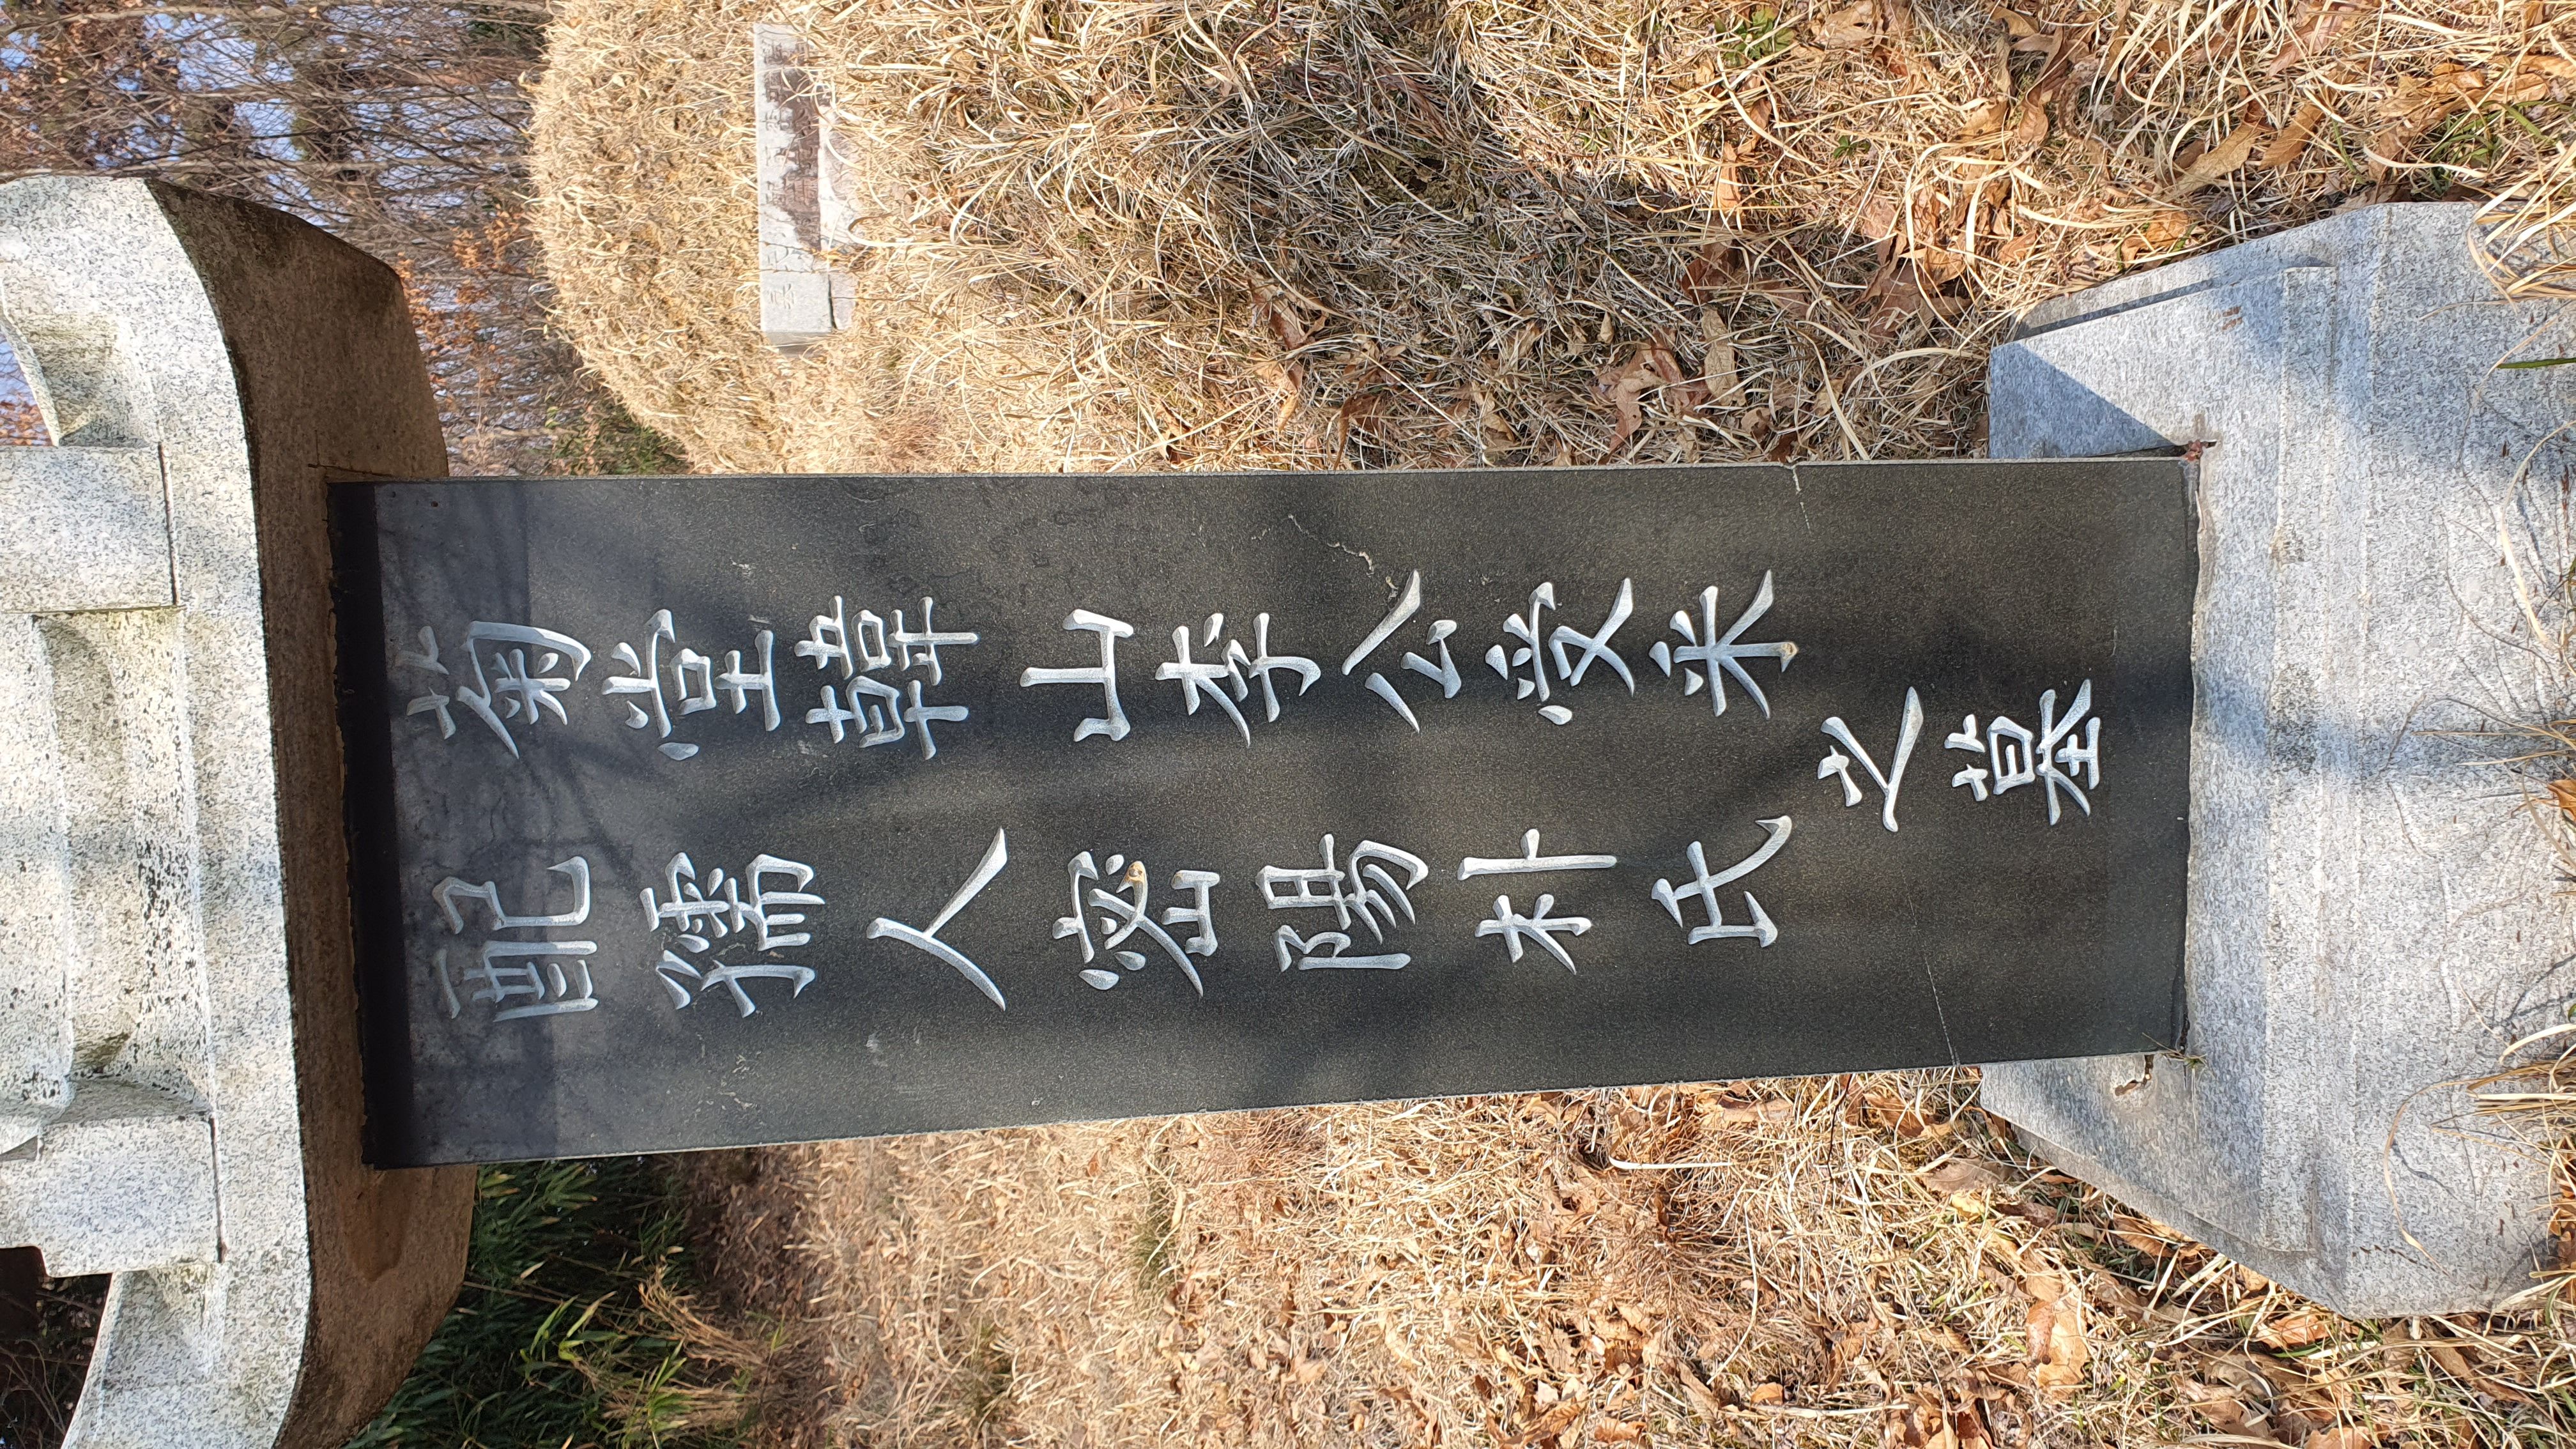 菊堂韓山李公受
配孺人密陽朴氏
之墓